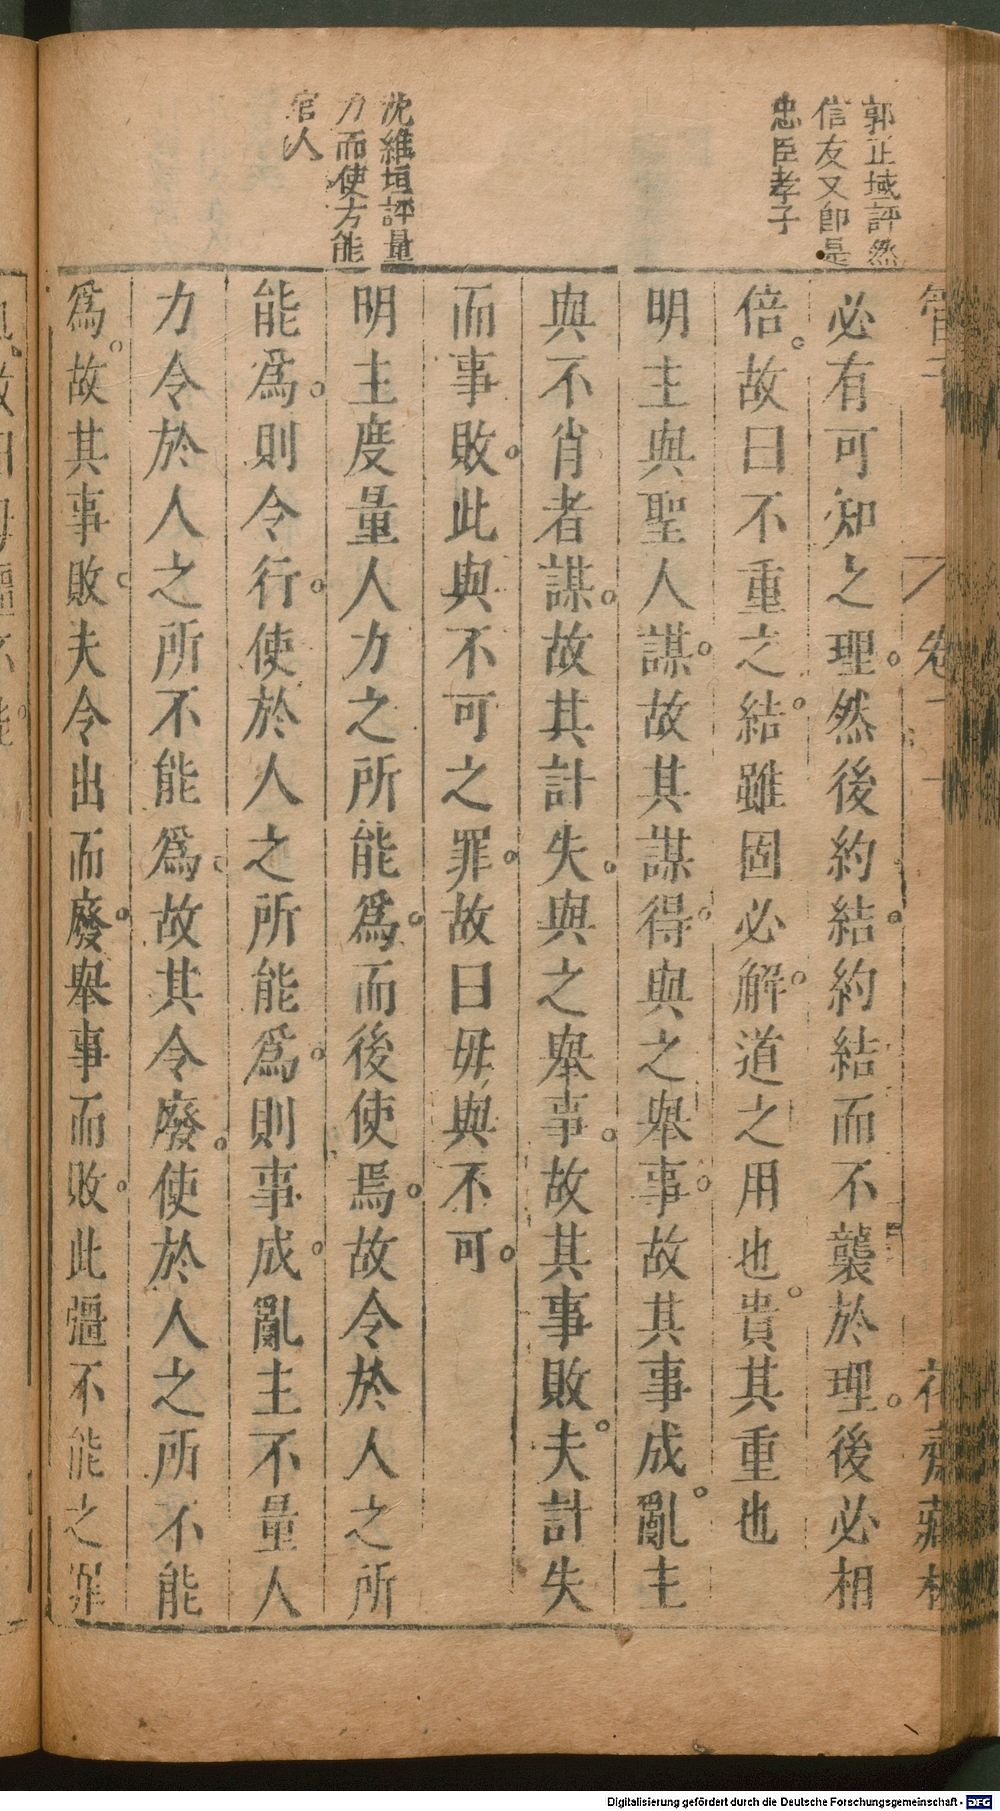 郭正域評然
信友又卽是
忠臣孝子
沈維垣評量
力而使方能
官人
管子
卷二十
花齋藏板
必有可知之理。然後約結。約結而不襲於理。後必相
倍。故曰不重之結。雖固必解。道之用也。貴其重也
明主與聖人謀。故其謀得。與之舉事。故其事成。亂主
與不肖者謀。故其計失。與之舉事。故其事敗。夫計失
而事敗。此與不可之罪。故曰毋與不可。
明主度量人力之所能爲。而後使焉。故令於人之所
能爲。則令行。使於人之所能爲。則事成。亂主不量人
力令於人之所不能爲。故其令廢。使於人之所不能
爲。故其事敗。夫令出而廢。舉事而敗。此彊不能之罪
Digitalisierung gefördert durch die Deutsche Forschungsgemeinschaft - DFG